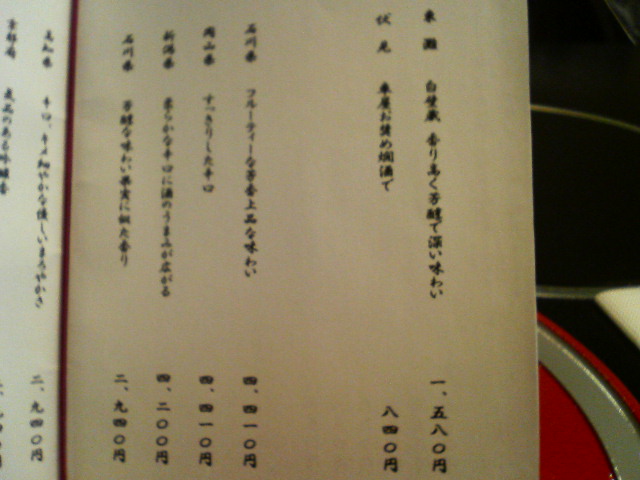 東灘 白壁蔵 香り高く芳醇で深い味わい 一、五八〇円
伏見 車屋お奨め燗酒で 八四〇円
石川県 フルーティーな芳香上品な味わい 四、四一〇円
岡山県 すっきりした辛口 四、四一〇円
新潟県 柔らかな辛口に酒のうまみが広がる 四、二〇〇円
石川県 芳醇な味わい果実に似た香り 二、九四〇円
高知県 辛口、キメ細やかな優しいまろやかさ 二、九四〇円
京都府 気品のある吟醸香